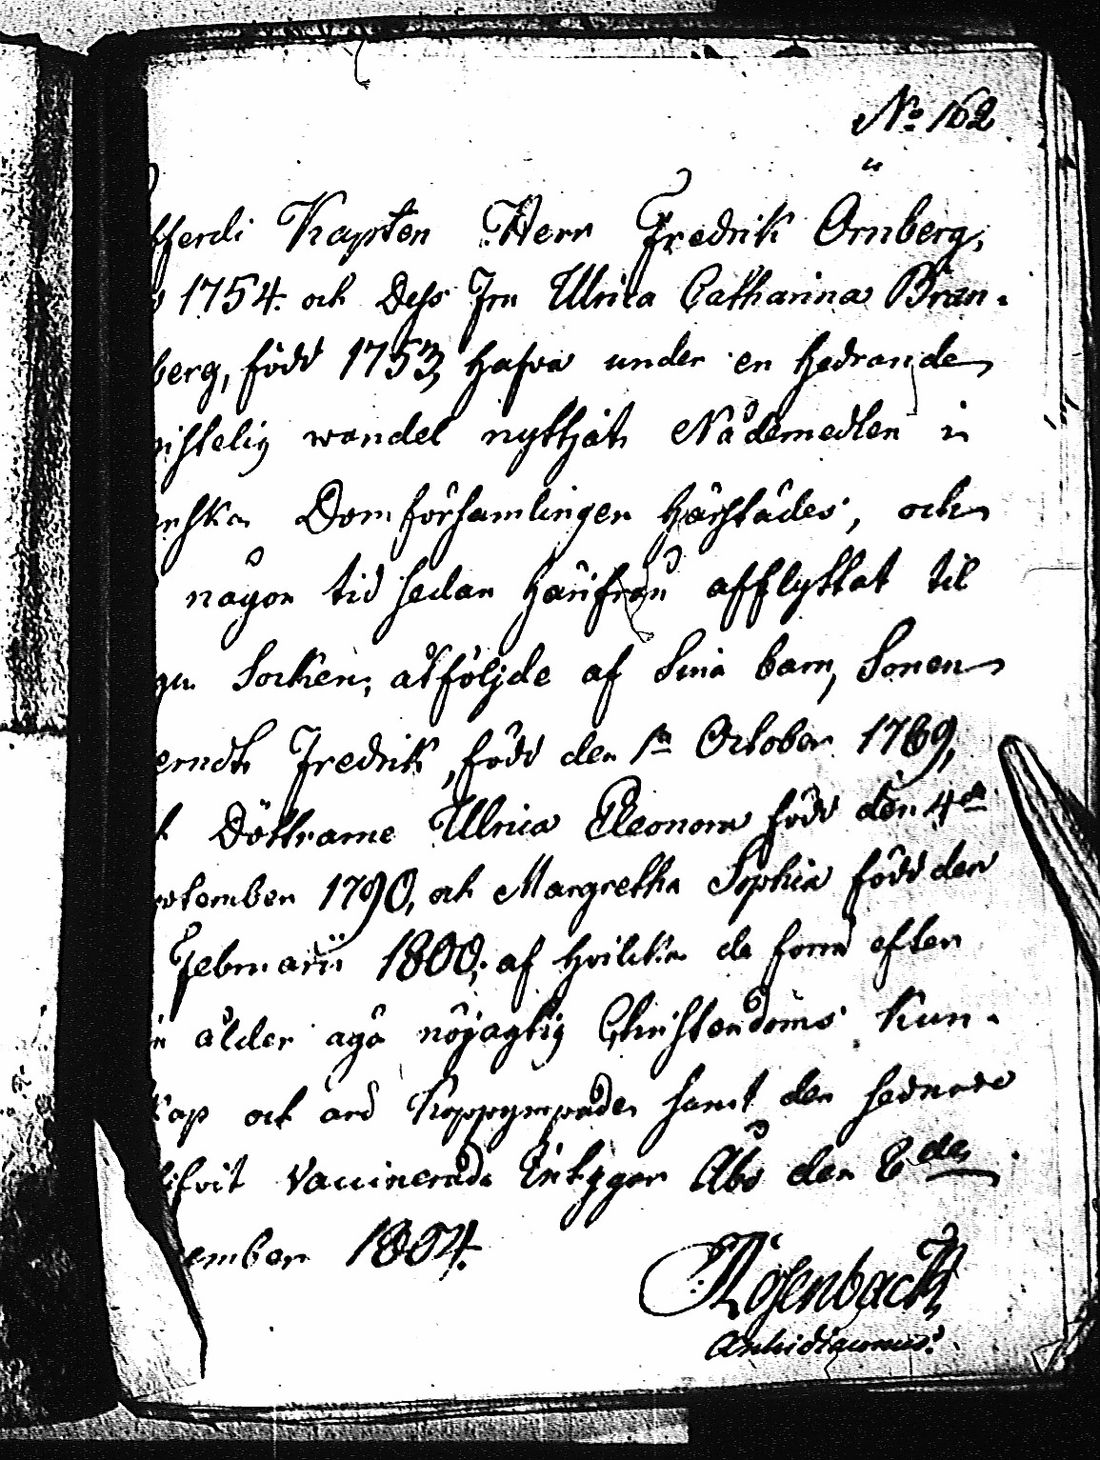 No 162
fferdi Kapten Herr Fredrik Örnberg,
1754. och Dess Fru Ulrica Catharina Bran-
berg, född 1753, hafva under en hedrande
istelig wandel nyttjat Nådemedlen i
nska Domförsamlingen härstädes, och
någon tid sedan härifrån afflyttat til
Socken, åtföljde af Sina barn, Sonen
erndt Fredrik, född den 1ta October 1769,
Döttrarne Ulrica Eleonora född den 4de
tember 1790, och Margretha Sophia född den
Februarii 1800, af hvilka de förra efter
ålder äga nöjagtig Christendoms Kun-
kap och äro Koppympade samt den sednare
lifvit Vaccinerad. Intygar Åbo den 6de
ember 1804.
Rosenback
Archidiaconus.